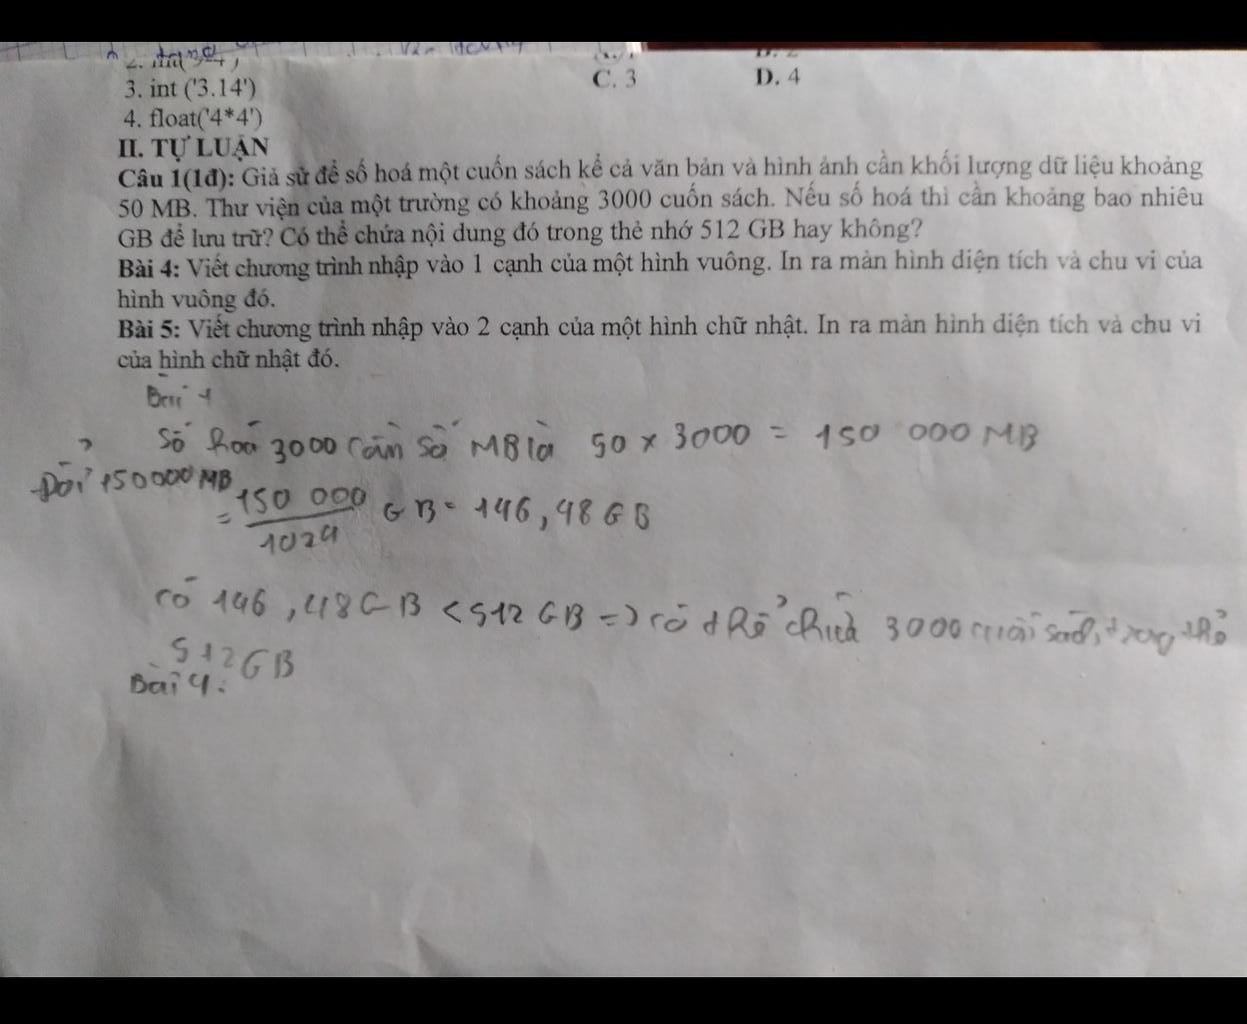 C. 3 D. 4
3. int ('3.14')
4. float('4*4')
II. TỰ LUẬN
Câu 1(1đ): Giả sử để số hoá một cuốn sách kể cả văn bản và hình ảnh cần khối lượng dữ liệu khoảng
50 MB. Thư viện của một trường có khoảng 3000 cuốn sách. Nếu số hoá thì cần khoảng bao nhiêu
GB để lưu trữ? Có thể chứa nội dung đó trong thẻ nhớ 512 GB hay không?
Bài 4: Viết chương trình nhập vào 1 cạnh của một hình vuông. In ra màn hình diện tích và chu vi của
hình vuông đó.
Bài 5: Viết chương trình nhập vào 2 cạnh của một hình chữ nhật. In ra màn hình diện tích và chu vi
của hình chữ nhật đó.
Bài 1
Số hoá 3000 cần số MB là 50 x 3000 = 150 000 MB
Đổi 150000 MB
= 150 000 / 1024 GB = 146,48 GB
có 146,48 GB < 512 GB => có thể chứa 3000 thẻ
512 GB
Bài 4: